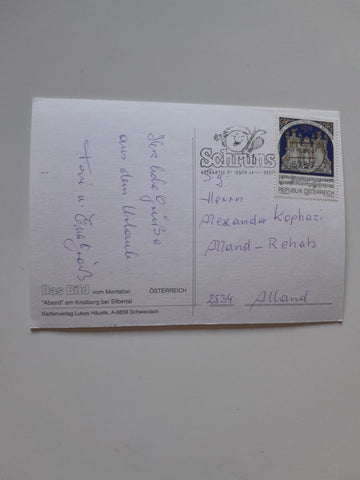 Herzliche Grüße
aus dem Urlaub
Das Bild vom Montafon ÖSTERREICH
"Abend" am Kristberg bei Silbertal
Kartenverlag Lukas Häusle, A-6858 Schwarzach
Schruns
REPUBLIK ÖSTERREICH
Herrn
Alexander Kophazi
Alland-Rehab
2534 Alland